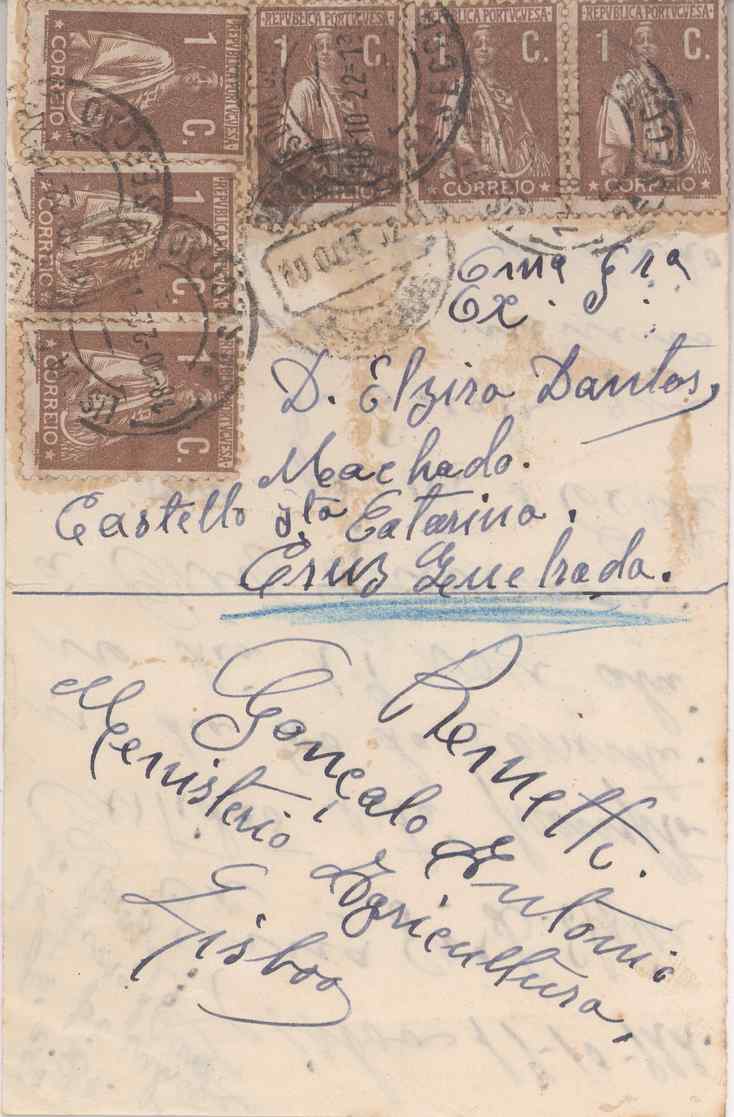 REPVBLICA PORTVGVESA
1 C.
CORREIO
REPVBLICA PORTVGVESA
1 C.
CORREIO
REPVBLICA PORTVGVESA
1 C.
CORREIO
REPVBLICA PORTVGVESA
1 C.
CORREIO
REPVBLICA PORTVGVESA
1 C.
CORREIO
REPVBLICA PORTVGVESA
1 C.
CORREIO
Ema Sra
Ex.
D. Elzira Dantas
Machado.
Castello Sta Catarina.
Cruz Quebrada.
Remette.
Gonçalo Antonio
Menisterio Agricultura,
Lisboa